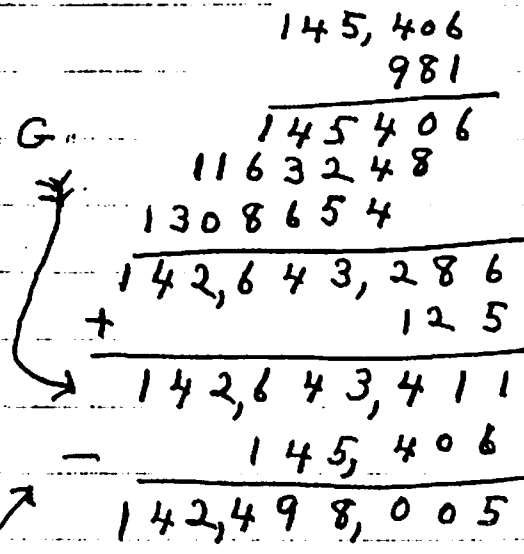 145,406
981
145406
G 1163248
1308654
142,643,286
+ 125
142,643,411
- 145,406
142,498,005